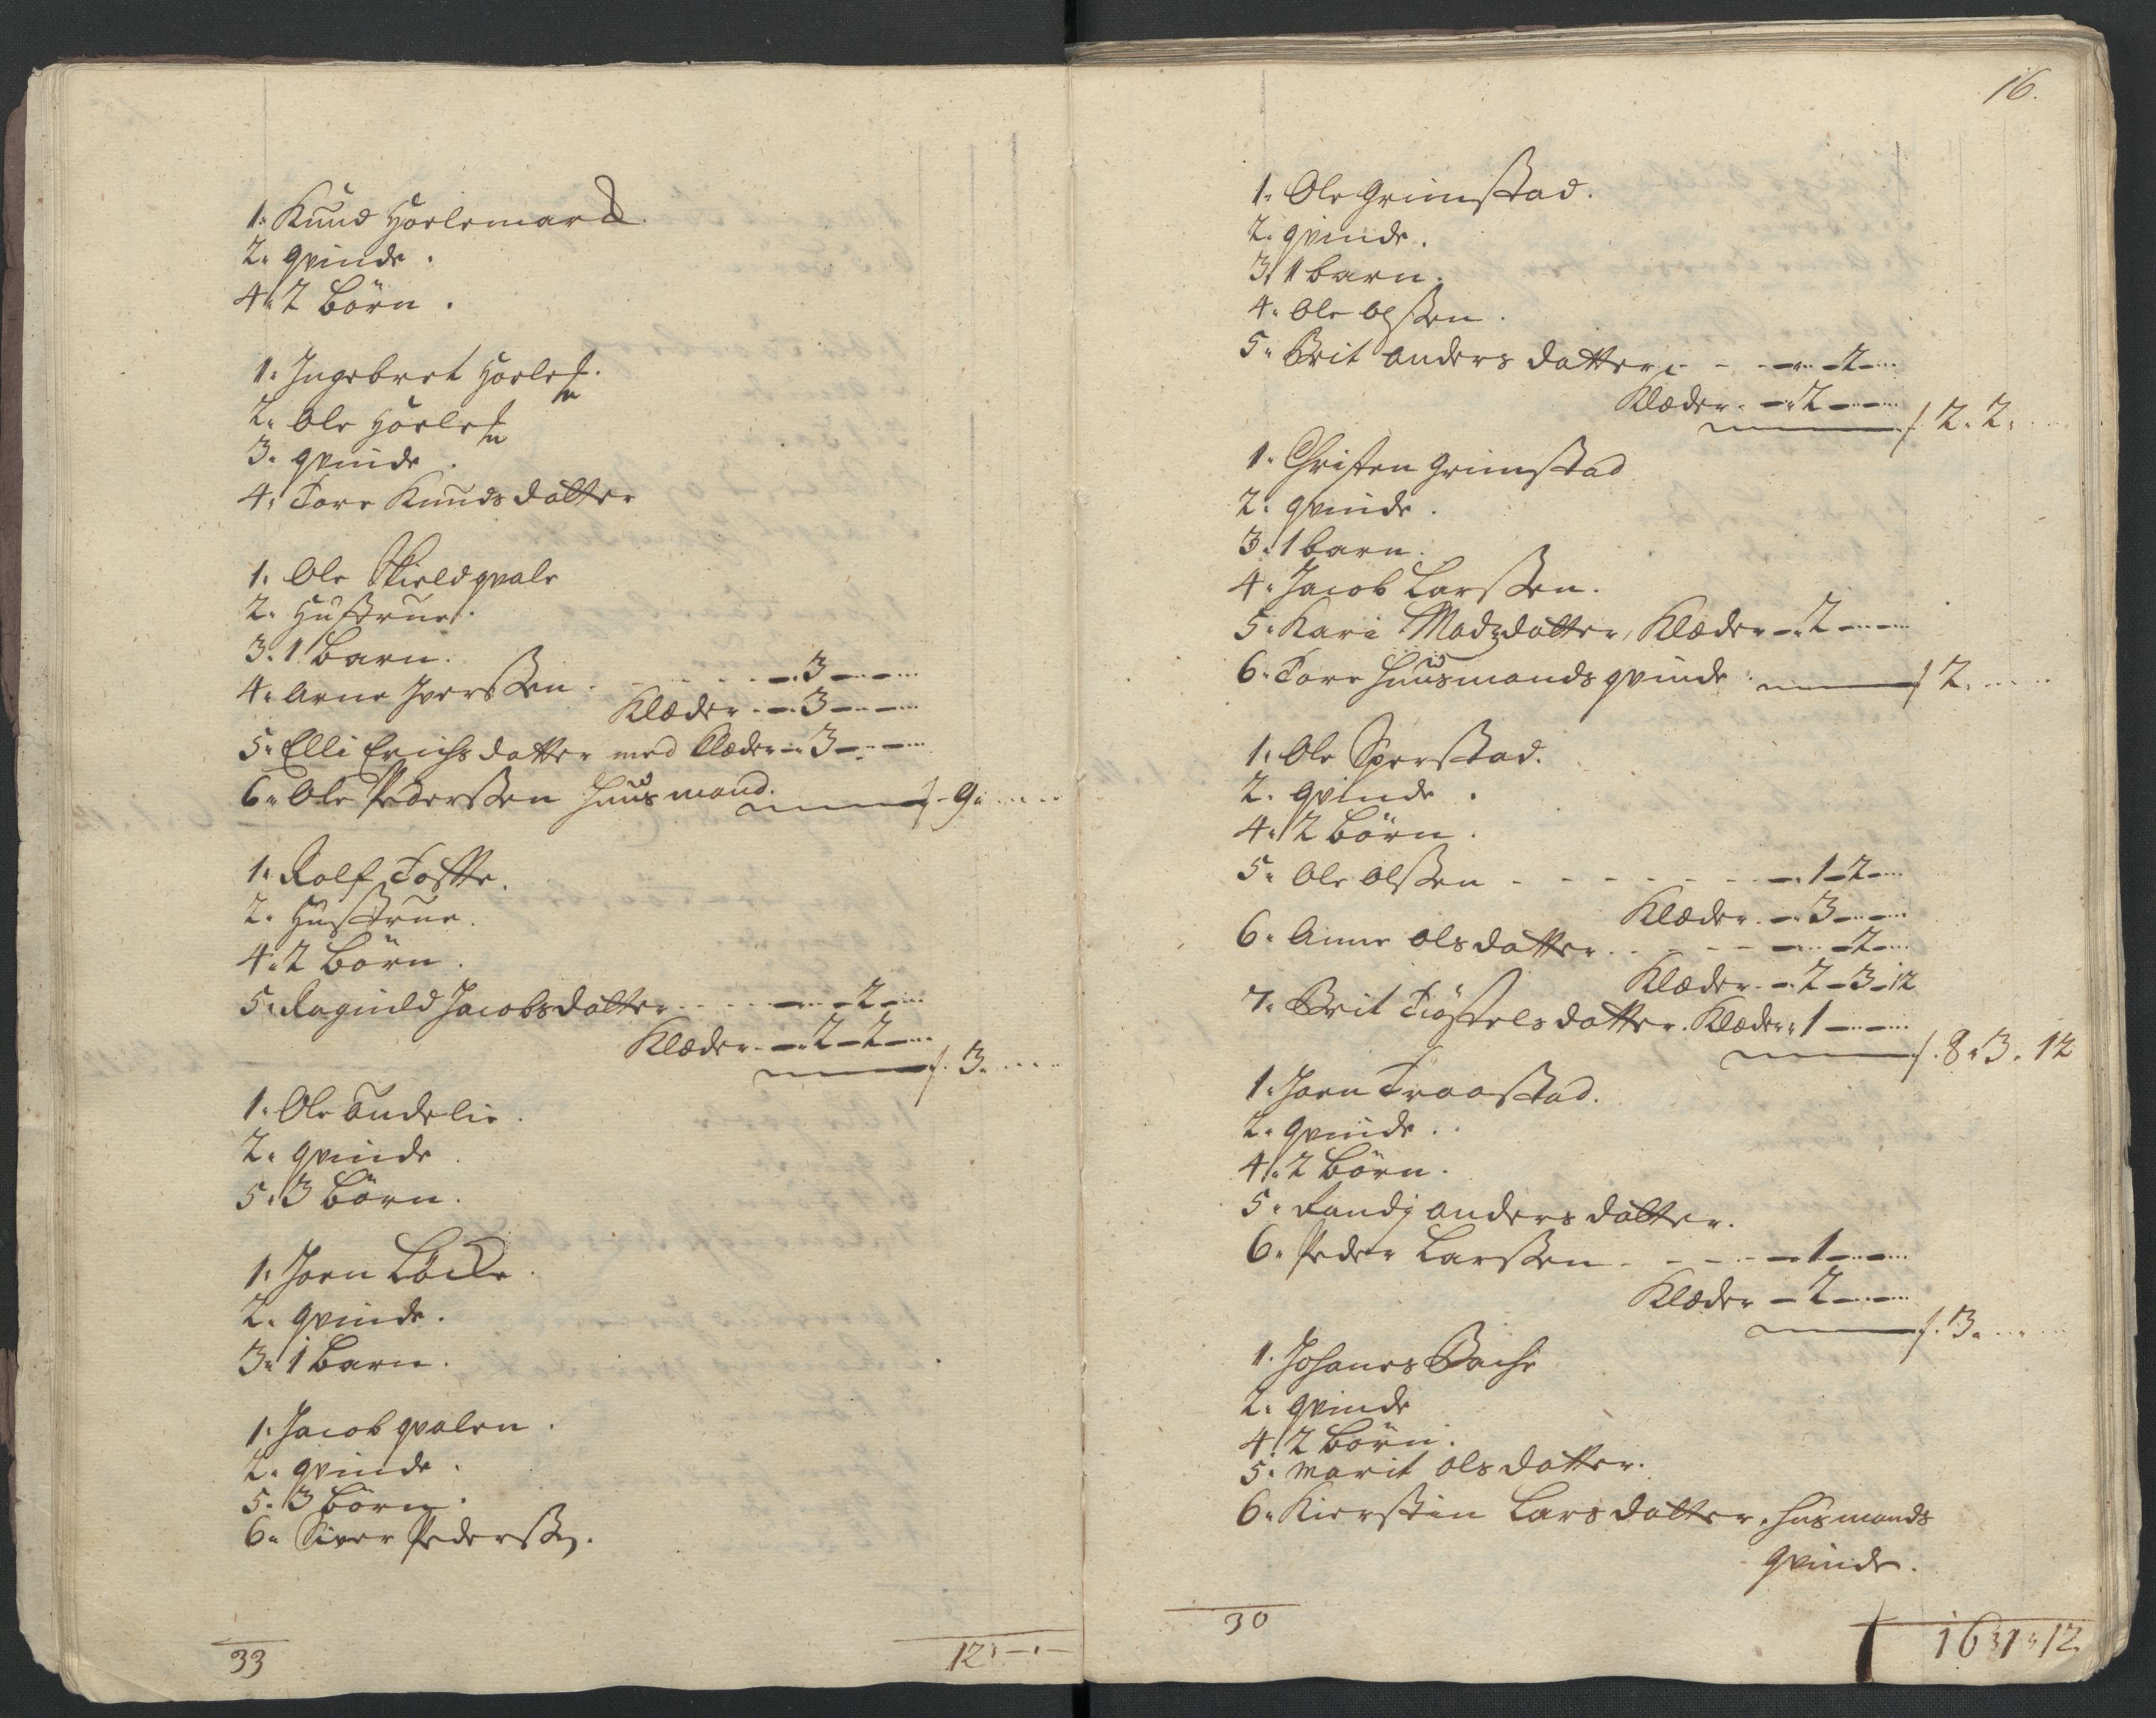 1. Knud Horlemarck.
2. qvinde.
4. 2 börn.
1. Ingebret
2. Ole
3. qvinde.
4. Tore Knudsdatter
1. Ole Skieldqvale
2. Hustrue.
3. 1 barn.
4. Arne Iverssen . - - - -.3-...-...
Klæder. -.3-...-...
5. Elli Erichsdatter med Klæder-.3-...-...
6. Ole Pederssen Huusmand. f. 9. ....
1. Rolf Tofte.
2. Hustrue.
4. 2 börn.
5. Ragnild Jacobsdatter . - - -...-2-...
Klæder. -.2-2-...
f. 3. ....
1. Ole Andelie.
2. qvinde.
5. 3 börn.
1. Joen Löcke.
2. qvinde.
3. 1 barn.
1. Jacob qvalen.
2. qvinde.
5. 3 börn.
6. Siver Pederssen.
33
12"-"-
16.
1. Ole Grimstad.
2. qvinde.
3. 1 barn.
4. Ole Olssen.
5. Brit Andersdatter . - - -...-2-...
Klæder. -.2-...-...
f 2. 2. ...
1. Christen Grimstad
2. qvinde.
3. 1 barn.
4. Jacob Larssen.
5. Kari Madzdatter, Klæder-.2-...-...
6. Tore Huusmands qvinde. f 2. ....
1. Ole Sperstad.
2. qvinde.
4. 2 börn.
5. Ole Olssen - - - - - -.1-2-...
Klæder. -.3-...-...
6. Anne Olsdatter. . - - -...-2-...
Klæder. -.2-3-12
7. Brit Tiöstelsdatter. Klæder. 1-...-...
f. 8. 3. 12
1. Joen Traastad.
2. qvinde..
4. 2 börn.
5. Randj Andersdatter.
6. Peder Larssen. - - - -1-...-...
Klæder -2-...-...
f. 3. ....
1. Johanes Bache
2. qvinde
4. 2 börn.
5. Marit Olsdatter.
6. Kierstin Larsdatter, Husmands
qvinde.
30
16"1"12